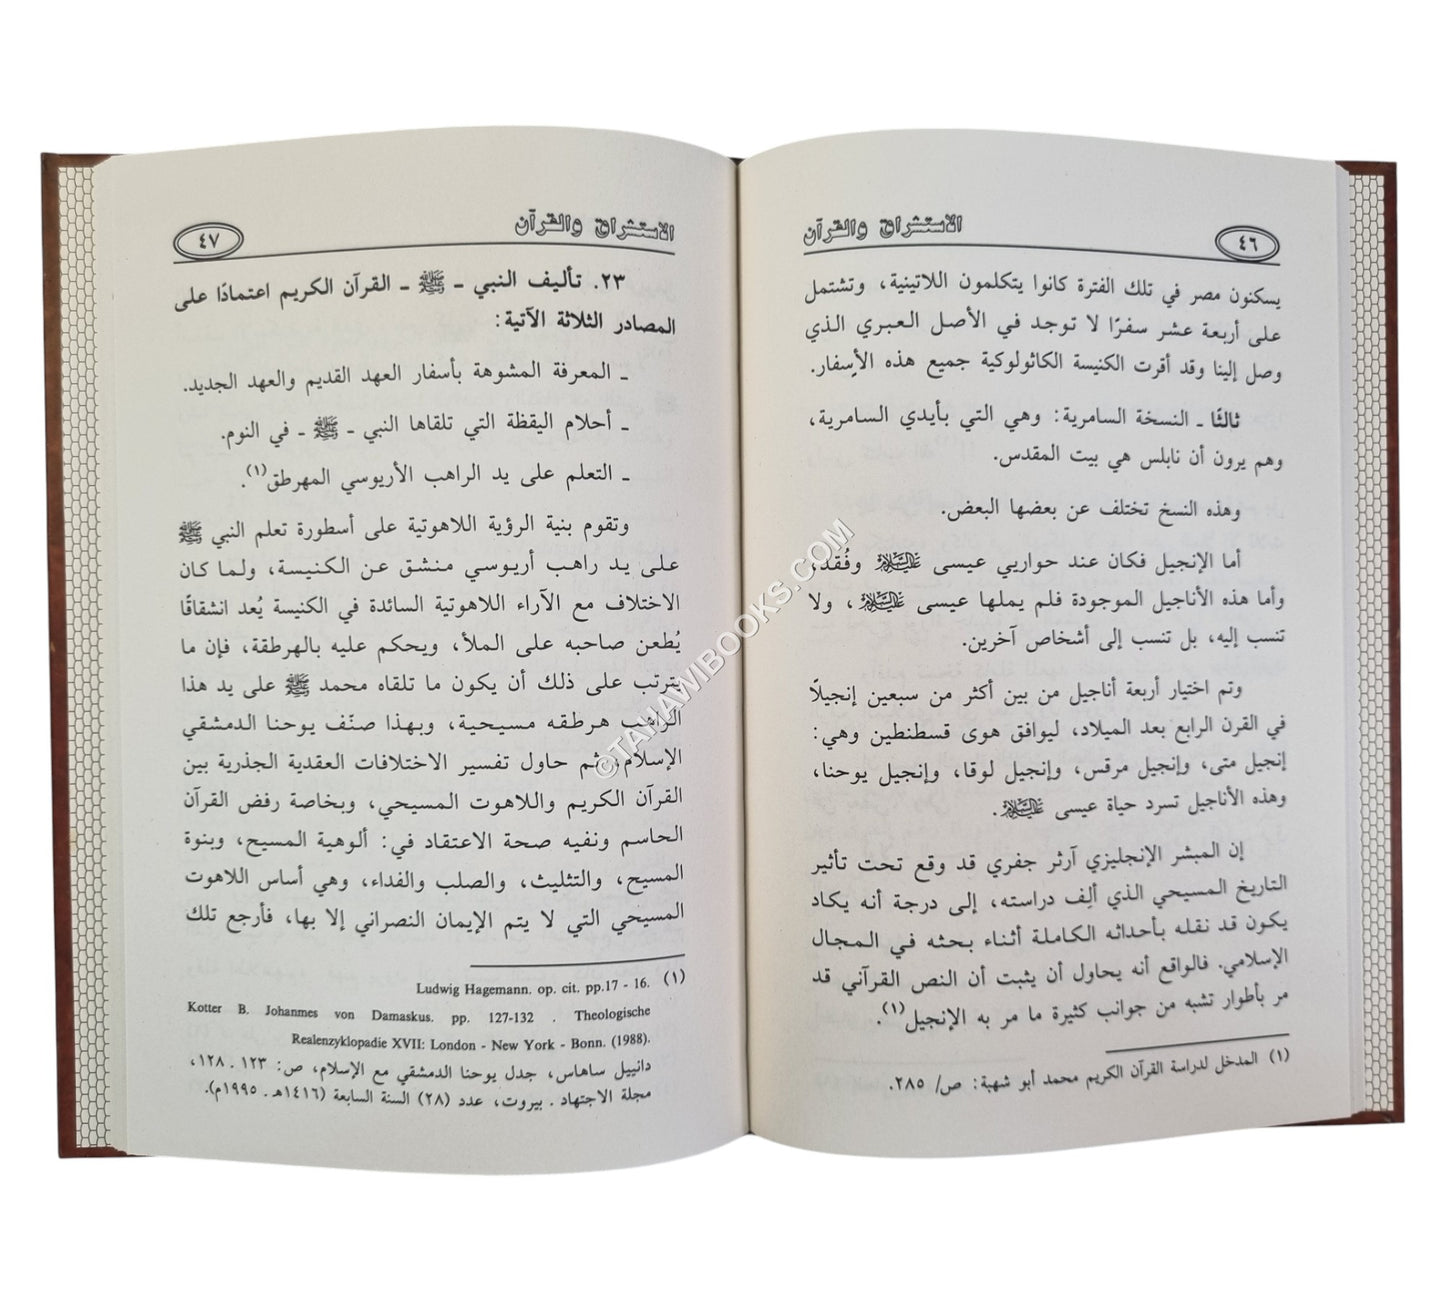 الاستشراق والقرآن
٤٦
يسكنون مصر في تلك الفترة كانوا يتكلمون اللاتينية، وتشتمل
على أربعة عشر سفرًا لا توجد في الأصل العبري الذي
وصل إلينا وقد أقرت الكنيسة الكاثولوكية جميع هذه الأسفار.
ثالثًا ـ النسخة السامرية: وهي التي بأيدي السامرية،
وهم يرون أن نابلس هي بيت المقدس.
وهذه النسخ تختلف عن بعضها البعض.
أما الإنجيل فكان عند حواريي عيسى عليه السلام وفُقد،
وأما هذه الأناجيل الموجودة فلم يملها عيسى عليه السلام، ولا
تنسب إليه، بل تنسب إلى أشخاص آخرين.
وتم اختيار أربعة أناجيل من بين أكثر من سبعين إنجيلًا
في القرن الرابع بعد الميلاد، ليوافق هوى قسطنطين وهي:
إنجيل متى، وإنجيل مرقس، وإنجيل لوقا، وإنجيل يوحنا،
وهذه الأناجيل تسرد حياة عيسى عليه السلام.
إن المبشر الإنجليزي آرثر جفري قد وقع تحت تأثير
التاريخ المسيحي الذي ألِف دراسته، إلى درجة أنه يكاد
يكون قد نقله بأحداثه الكاملة أثناء بحثه في المجال
الإسلامي. فالواقع أنه يحاول أن يثبت أن النص القرآني قد
مر بأطوار تشبه من جوانب كثيرة ما مر به الإنجيل(١).
(١) المدخل لدراسة القرآن الكريم محمد أبو شهبة: ص/ ٢٨٥.
الاستشراق والقرآن
٤٧
٢٣. تأليف النبي ـ ﷺ ـ القرآن الكريم اعتمادًا على
المصادر الثلاثة الآتية:
ـ المعرفة المشوهة بأسفار العهد القديم والعهد الجديد.
ـ أحلام اليقظة التي تلقاها النبي ـ ﷺ ـ في النوم.
ـ التعلم على يد الراهب الأريوسي المهرطق(١).
وتقوم بنية الرؤية اللاهوتية على أسطورة تعلم النبي ﷺ
على يد راهب أريوسي منشق عن الكنيسة، ولما كان
الاختلاف مع الآراء اللاهوتية السائدة في الكنيسة يُعد انشقاقًا
يُطعن صاحبه على الملأ، ويحكم عليه بالهرطقة، فإن ما
يترتب على ذلك أن يكون ما تلقاه محمد ﷺ على يد هذا
الراهب هرطقه مسيحية، وبهذا صنّف يوحنا الدمشقي
الإسلام، ثم حاول تفسير الاختلافات العقدية الجذرية بين
القرآن الكريم واللاهوت المسيحي، وبخاصة رفض القرآن
الحاسم ونفيه صحة الاعتقاد في: ألوهية المسيح، وبنوة
المسيح، والتثليث، والصلب والفداء، وهي أساس اللاهوت
المسيحي التي لا يتم الإيمان النصراني إلا بها، فأرجع تلك
(١) Ludwig Hagemann. op. cit. pp.17 - 16.
Kotter B. Johanmes von Damaskus. pp. 127-132 . Theologische
Realenzyklopadie XVII: London - New York - Bonn. (1988).
دانييل ساهاس، جدل يوحنا الدمشقي مع الإسلام، ص: ١٢٣ ـ ١٢٨،
مجلة الاجتهاد ـ بيروت، عدد (٢٨) السنة السابعة (١٤١٦هـ ـ ١٩٩٥م).
©TAHAWIBOOKS.COM